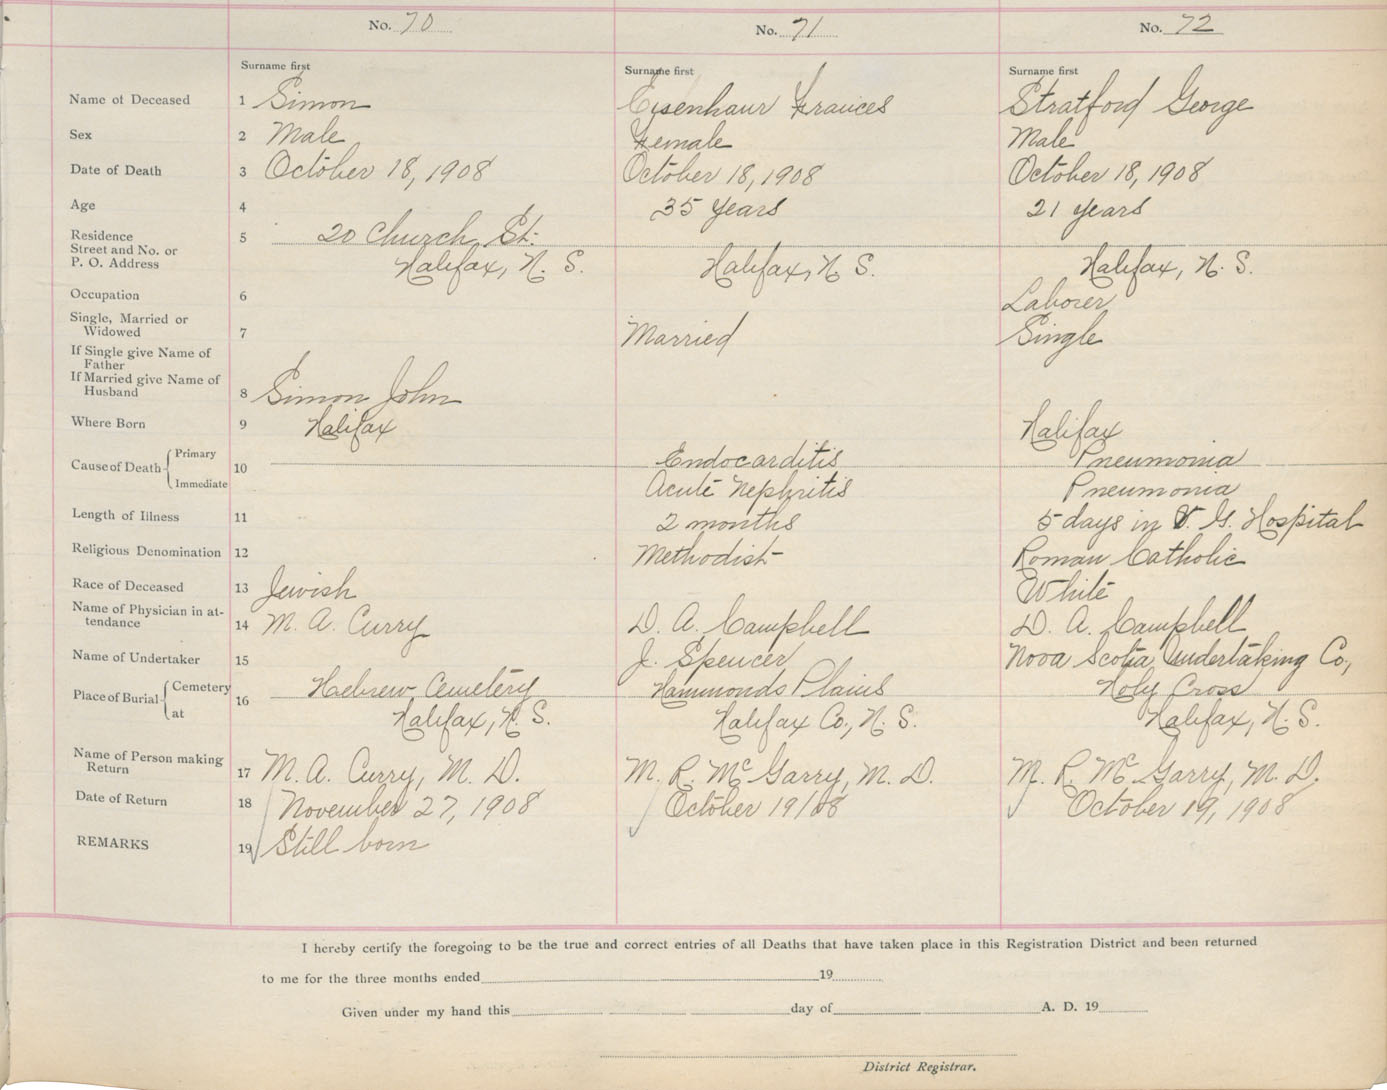 No. 70 No. 71 No. 72
Surname first Surname first Surname first
Name of Deceased 1 Simon Eisenhaur Frances Stratford George
Sex 2 Male Female Male
Date of Death 3 October 18, 1908 October 18, 1908 October 18, 1908
Age 4 35 years 21 years
Residence 5 20 Church St.
Street and No. or
P. O. Address Halifax, N. S. Halifax, N. S. Halifax, N. S.
Occupation 6 Laborer
Single, Married or
Widowed 7 Married Single
If Single give Name of
Father
If Married give Name of
Husband 8 Simon John
Where Born 9 Halifax Halifax
Cause of Death Primary 10 Endocarditis Pneumonia
Immediate Acute Nephritis Pneumonia
Length of Illness 11 2 months 5 days in V. G. Hospital
Religious Denomination 12 Methodist Roman Catholic
Race of Deceased 13 Jewish White
Name of Physician in at-
tendance 14 M. A. Curry D. A. Campbell D. A. Campbell
Name of Undertaker 15 J. Spencer Nova Scotia Undertaking Co,
Place of Burial Cemetery 16 Hebrew Cemetery Hammonds Plains Holy Cross
at Halifax, N. S. Halifax Co., N. S. Halifax, N. S.
Name of Person making
Return 17 M. A. Curry, M. D. M. R. McGarry, M. D. M. R. McGarry, M. D.
Date of Return 18 November 27, 1908 October 19/08 October 19, 1908
REMARKS 19 Still born
I hereby certify the foregoing to be the true and correct entries of all Deaths that have taken place in this Registration District and been returned
to me for the three months ended 19
Given under my hand this day of A. D. 19
District Registrar.